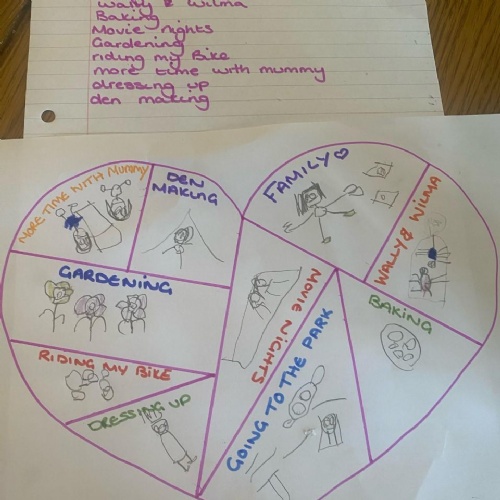 Wally & Wilma
Baking
Movie nights
Gardening
riding my Bike
more time with mummy
dressing up
den making
MORE TIME WITH MUMMY
DEN
MAKING
FAMILY
WALLY & WILMA
GARDENING
MOVIE NIGHTS
BAKING
RIDING MY BIKE
GOING TO THE PARK
DRESSING UP